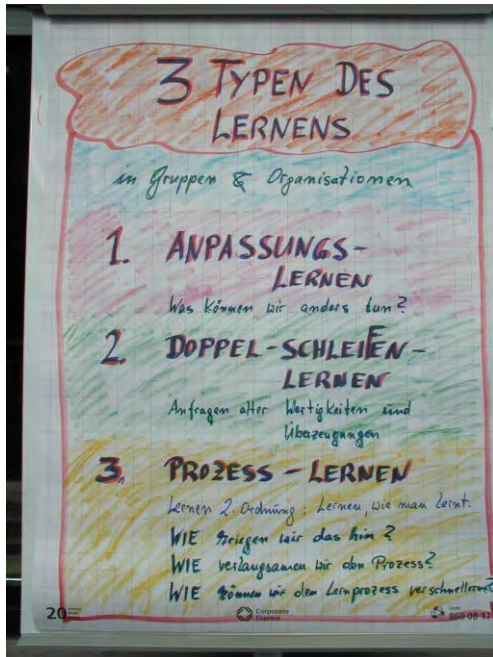 3 TYPEN DES
LERNENS
in Gruppen & Organisationen
1. ANPASSUNGS-
LERNEN
Was können wir anders tun?
2. DOPPEL-SCHLEIFEN-
LERNEN
Anfragen alter Wertigkeiten und
Überzeugungen
3. PROZESS-LERNEN
Lernen 2. Ordnung: Lernen, wie man lernt.
WIE kriegen wir das hin?
WIE verlangsamen wir den Prozess?
WIE können wir den Lernprozess verschnellern?
20 Corporate Express 860 08 17